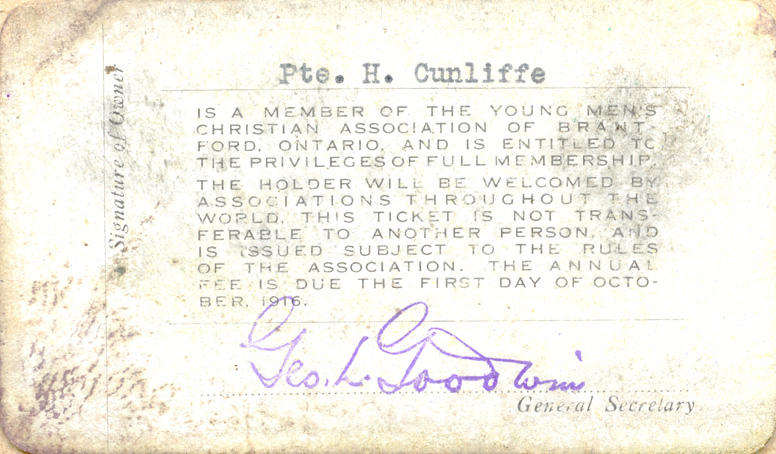 Pte. H. Cunliffe
IS A MEMBER OF THE YOUNG MEN'S
CHRISTIAN ASSOCIATION OF BRANT-
FORD, ONTARIO, AND IS ENTITLED TO
THE PRIVILEGES OF FULL MEMBERSHIP.
THE HOLDER WILL BE WELCOMED BY
ASSOCIATIONS THROUGHOUT THE
WORLD. THIS TICKET IS NOT TRANS-
FERABLE TO ANOTHER PERSON, AND
IS ISSUED SUBJECT TO THE RULES
OF THE ASSOCIATION. THE ANNUAL
FEE IS DUE THE FIRST DAY OF OCTO-
BER, 1916.
Geo. L. Goodwin
General Secretary
Signature of Owner